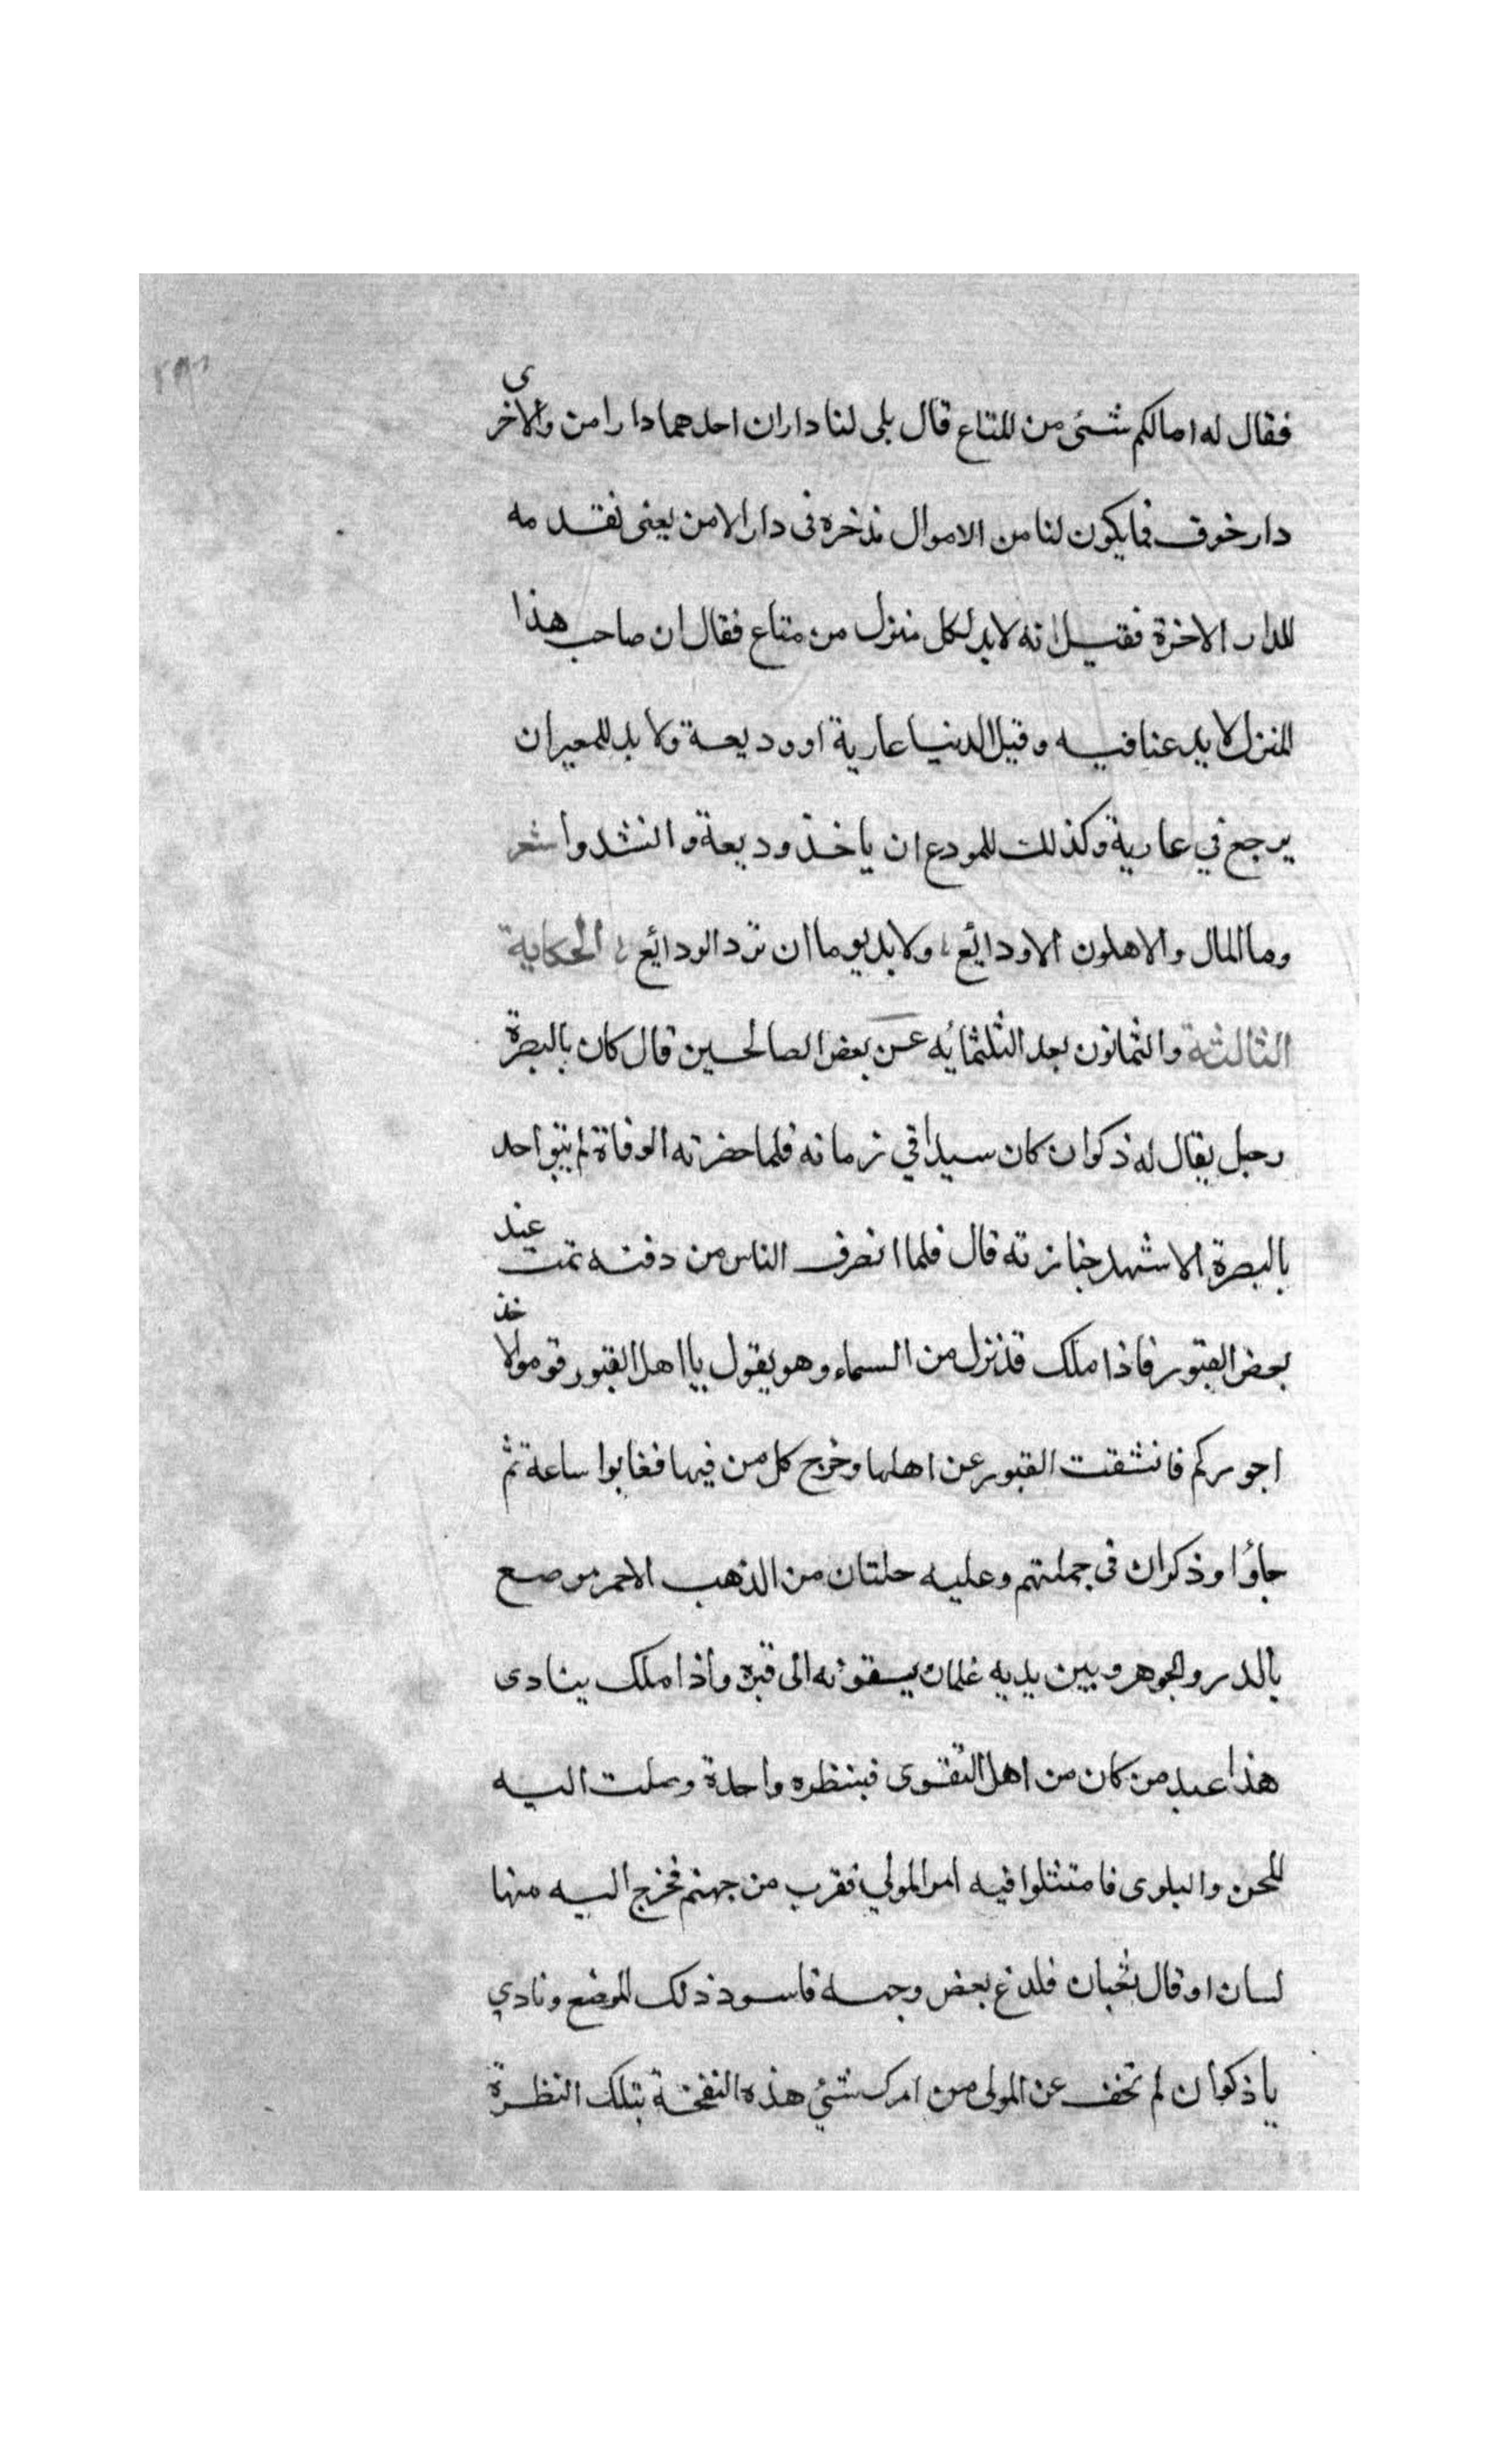 فقال له امالكم شئ من المتاع قال بلى لنا داران احدهما دار امن والاخرى
دار خوف فما يكون لنا من الاموال نذخره فى دار الامن يعنى نقدمه
للدار الاخرة فقيل انه لابد لكل منزل من متاع فقال ان صاحب هذا
المنزل لا يدعنا فيه وقيل الدنيا عارية او وديعة ولا بد للمعير ان
يرجع في عارية وكذلك للمودع ان ياخذ وديعة وانشدوا شعر
وما المال والاهلون الا ودائع ولا بد يوما ان ترد الودائع الحكاية
الثالثة والثمانون بعد الثلثمايه عن بعض الصالحين قال كان بالبصرة
رجل يقال له ذكوان كان سيدا في زمانه فلما حضرته الوفاة لم يبق احد
بالبصرة الا شهد جنازته قال فلما انصرف الناس من دفنه نمت عند
بعض القبور فاذا ملك قد نزل من السماء وهو يقول يا اهل القبور قوموا لاخذ
اجوركم فانشقت القبور عن اهلها وخرج كل من فيها فغابوا ساعة ثم
جاؤا وذكران فى جملتهم وعليه حلتان من الذهب الاحمر مرصع
بالدر والجوهر وبين يديه غلمان يسقونه الى قبره واذا ملك ينادى
هذا عبد من كان من اهل التقوى فبنظره واحدة وصلت اليه
المحن والبلوى فامتثلوا فيه امر المولي فقرب من جهنم فخرج اليه منها
لسان او قال ثعبان فلدغ بعض وجهه فاسود ذلك الموضع ونادي
يا ذكوان لم تخف عن المولى من امرك شئ هذه النفخة بتلك النظرة